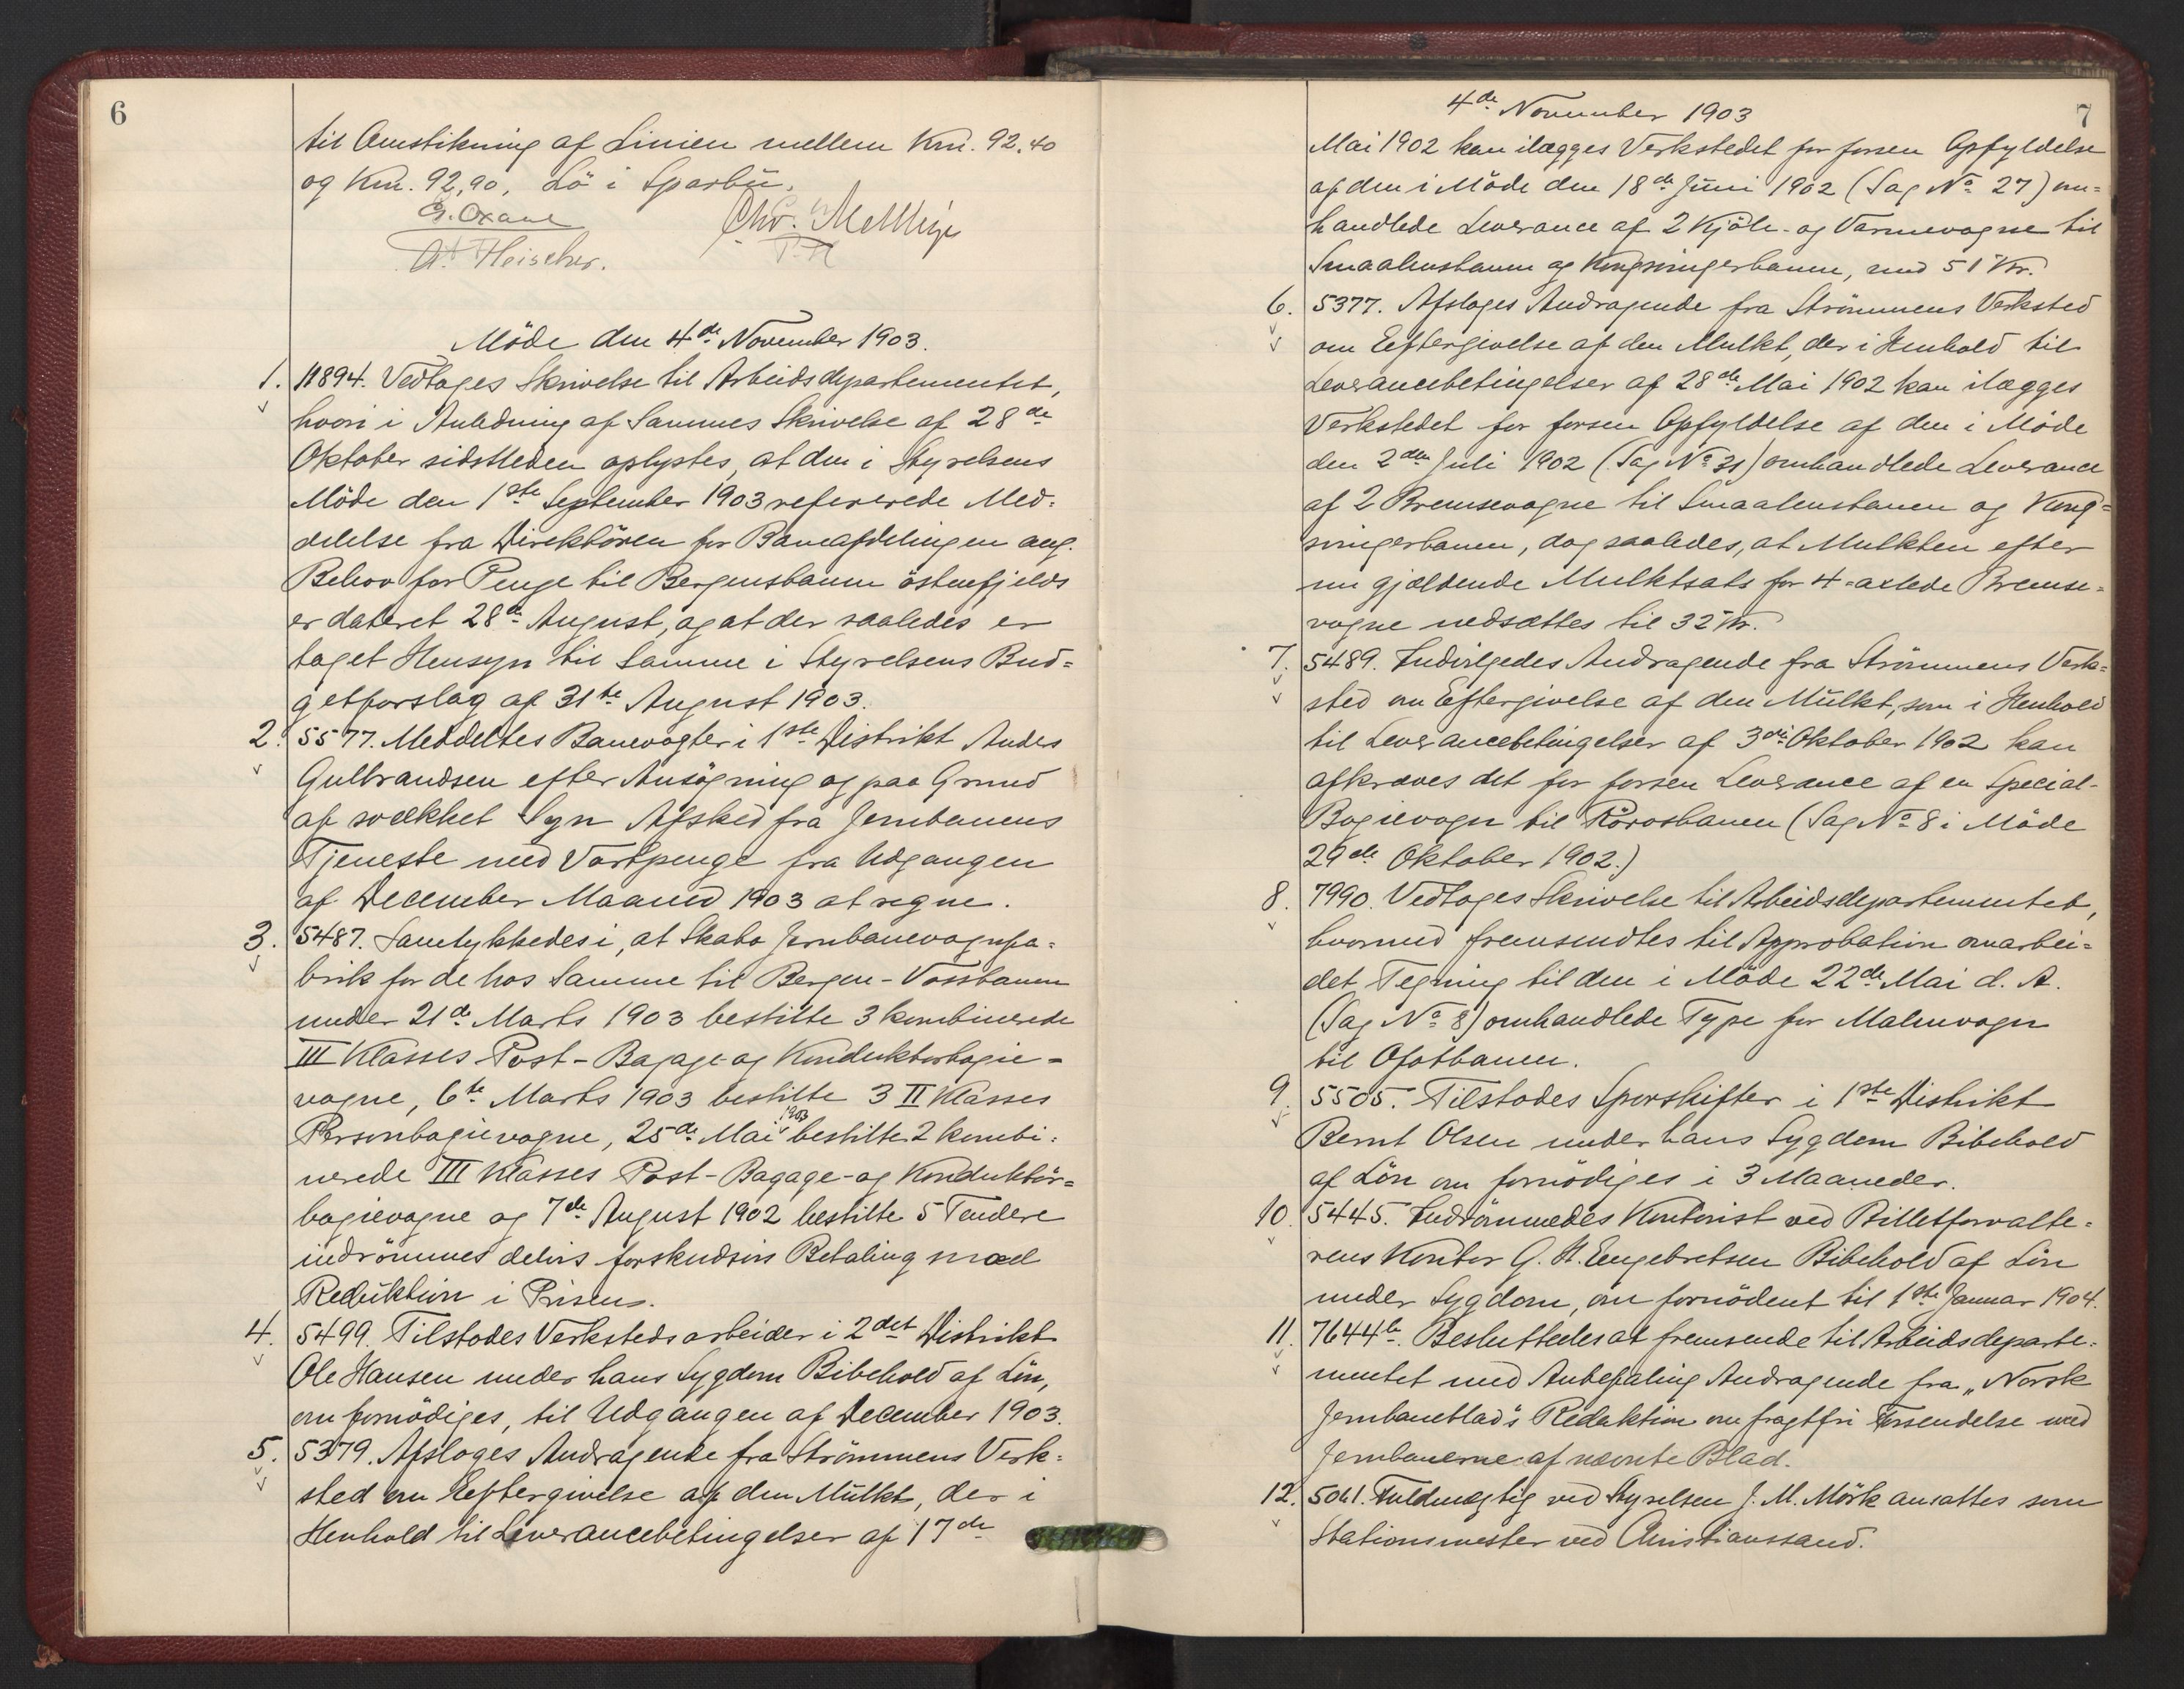 6
til Omstikning af Linien mellem Km. 92,40
og Km. 92,90, Lö i Sparbu.
Chr.
Fleischer.
Möde den 4de November 1903.
1. 11894. Vedtoges Skrivelse til Arbeidsdepartementet,
hvori i Anledning af Sammes Skrivelse af 28de
Oktober sidstleden oplystes, at den i Styrelsens
Möde den 1ste September 1903 refererede Med=
delelse fra Direktören for Baneafdelingen ang.
Behov for Penge til Bergensbanen östenfjelds
er dateret 28de August, og at der saaledes er
taget Hensyn til Samme i Styrelsens Bud=
getforslag af 31te August 1903.
2. 5577. Meddeltes Banevogter i 1ste Distrikt Anders
Gulbrandsen efter Ansögning og paa Grund
af svækket Syn Afsked fra Jernbanens
Tjeneste med Vartpenge fra Udgangen
af December Maaned 1903 at regne.
3. 5487. Samtykkedes i, at Skabo Jernbanevognfa=
brik for de hos Samme til Bergen-Vossbanen
under 21de Marts 1903 bestilte 3 kombinerede
III Klasses Post- Bagage- og Konduktorbogie=
vogne, 6te Marts 1903 bestilte 3 II Klasses
Personbogievogne, 25de Mai 1903 bestilte 2 kombi=
nerede III Klasses Post- Bagage- og Konduktör=
bogievogne og 7de August 1902 bestilte 5 Tendere
indrömmes delvis forskudsvis Betaling mod
Reduktion i Prisen.
4. 5499. Tilstodes Verkstedsarbeider i 2det Distrikt
Ole Hansen under hans Sygdom Bibehold af Lön,
om fornödiges, til Udgangen af December 1903.
5. 5379. Afsloges Andragende fra Strömmens Verk=
sted om Eftergivelse af den Mulkt, der i
Henhold til Leverancebetingelser af 17de
4de November 1903
7
Mai 1902 kan ilægges Verkstedet for forsen Opfyldelse
af den i Möde den 18de Juni 1902 (Sag No 27) om=
handlede Leverance af 2 Kjöle- og Varmevogne til
Smaalensbanen og Kongsvingerbanen, med 51 Kr.
6. 5377. Afsloges Andragende fra Strömmens Verksted
om Eftergivelse af den Mulkt, der i Henhold til
Leverancebetingelser af 28de Mai 1902 kan ilægges
Verkstedet for forsen Opfyldelse af den i Möde
den 2den Juli 1902 (Sag No 31) omhandlede Leverance
af 2 Bremsevogne til Smaalensbanen og Kongs=
vingerbanen, dog saaledes, at Mulkten efter
nu gjældende Mulktsats for 4-axlede Bremse=
vogne nedsættes til 32 Kr.
7. 5489. Indvilgedes Andragende fra Strömmens Verk=
sted om Eftergivelse af den Mulkt, som i Henhold
til Leverancebetingelser af 3die Oktober 1902 kan
afkræves det for forsen Leverance af en Special-
Bogievogn til Rörosbanen (Sag No 8 i Möde
29de Oktober 1902.)
8. 7990. Vedtoges Skrivelse til Arbeidsdepartementet,
hvormed fremsendtes til Approbation omarbei=
det Tegning til den i Möde 22de Mai d. A.
(Sag No 8) omhandlede Type for Malmvogn
til Ofotbanen.
9. 5505. Tilstodes Sporskifter i 1ste Distrikt
Bernt Olsen under hans Sygdom Bibehold
af Lön om fornödiges i 3 Maaneder.
10. 5445. Indrömmedes Kontorist ved Billetforvalte=
rens Kontor G. H. Engebretsen Bibehold af Lön
under Sygdom, om fornödent til 1ste Januar 1904.
11. 7644b. Besluttedes at fremsende til Arbeidsdeparte=
mentet med Anbefaling Andragende fra „Norsk
Jernbaneblad's Redaktion om fragtfri Forsendelse med
Jernbanerne af nævnte Blad.
12. 5061. Fuldmægtig ved Styrelsen J. M. Mörk ansattes som
Stationsmester ved Christianssand.